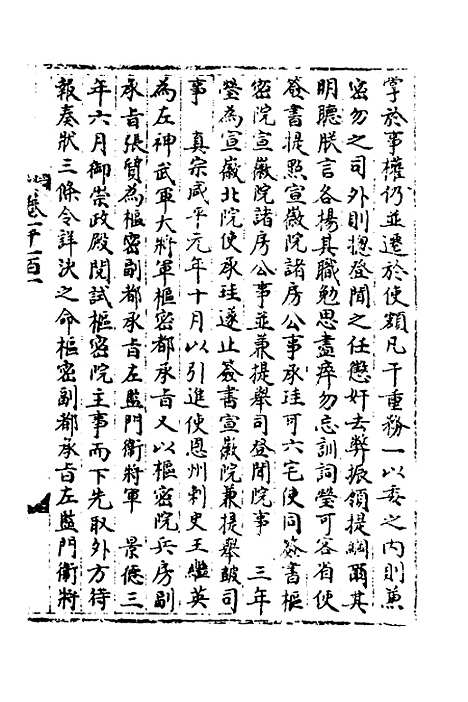 掌於事權仍並遷於使額凡干重務一以委之内則兼
密勿之司外則揔登聞之任懲奸去弊振領提綱爾其
明聽朕言各揚其職勉思盡瘁勿忘訓詞瑩可客省使
簽書提㸃宣徽院諸房公事承珪可六宅使同簽書樞
密院宣徽院諸房公事並兼提舉司登聞院事　三年
瑩為宣徽北院使承珪遂止簽書宣徽院兼提舉皷司
事　真宗咸平元年十月以引進使恩州刺史王繼英
為左神武軍大將軍樞密都承㫖又以樞密院兵房副
承㫖張質為樞密副都承㫖左監門衛將軍　景德三
年六月御崇政殿閱試樞密院主事而下先取外方待
報奏狀三條令詳決之命樞密副都承㫖左監門衛將
卷一千一百一